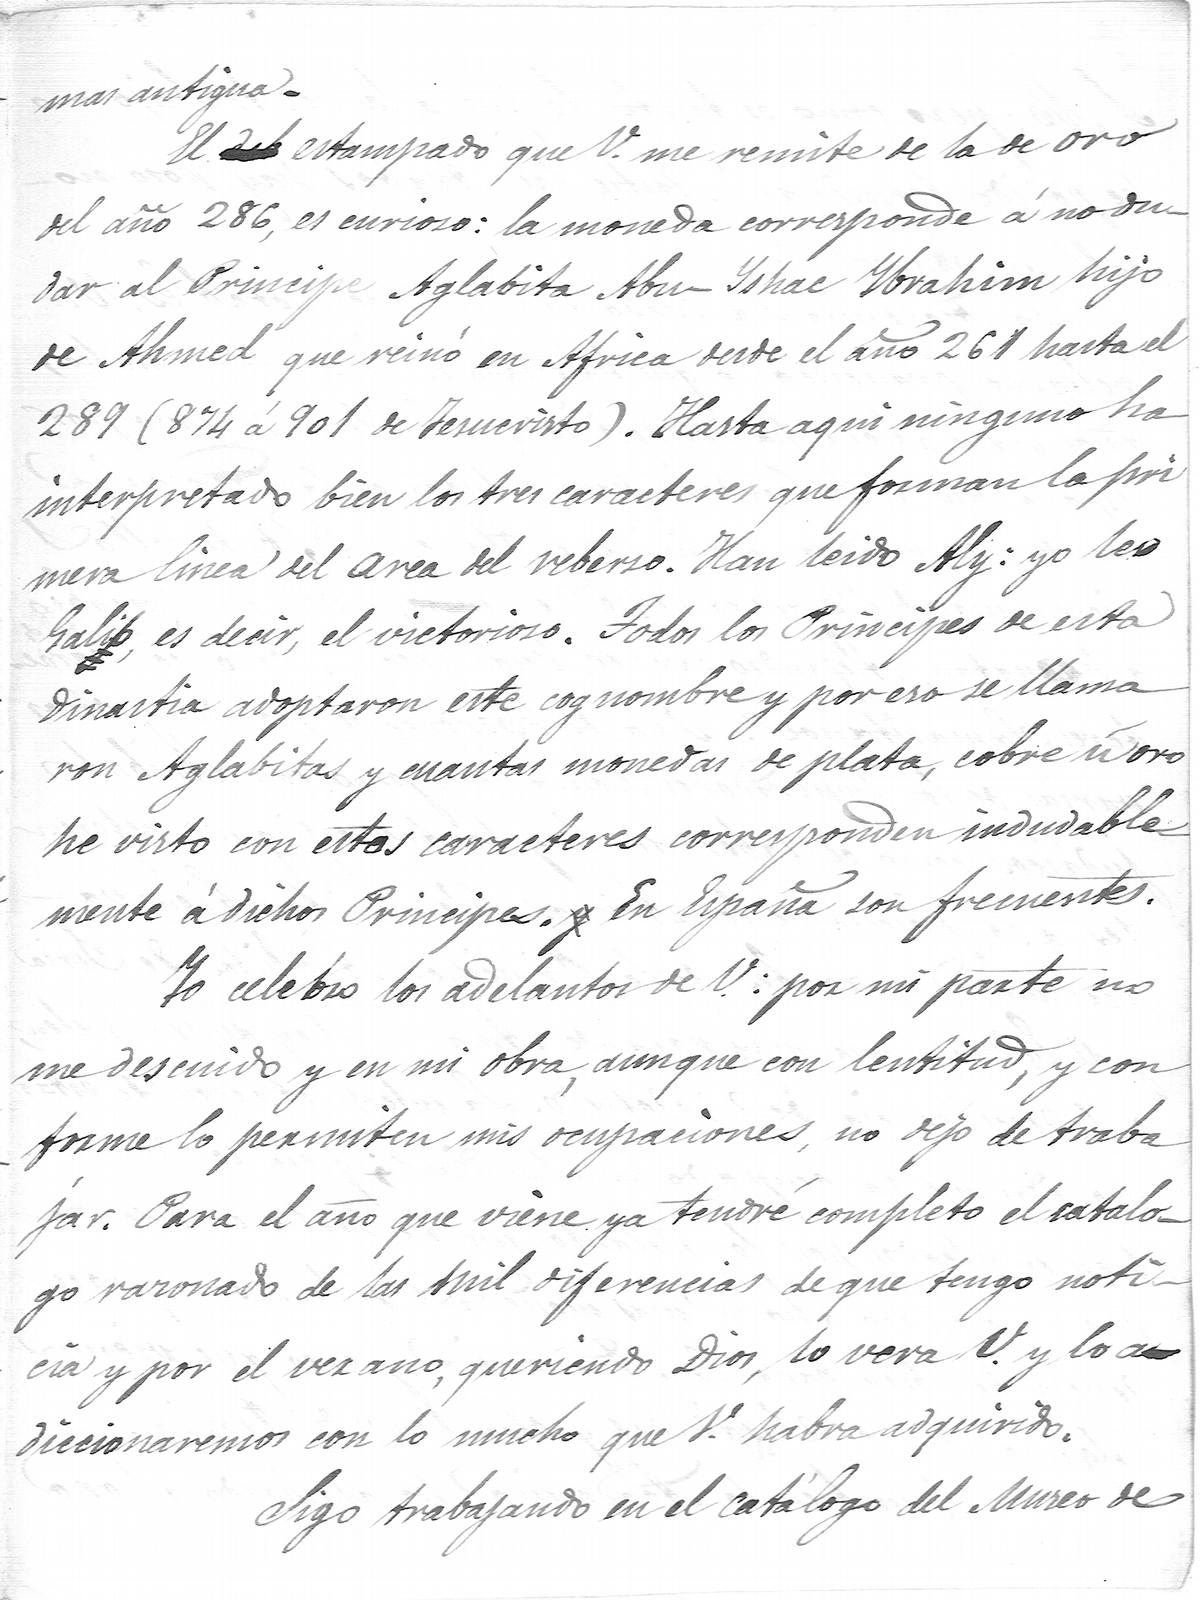 mas antigua.
El estampado que V. me remite de la de oro
del año 286, es curioso: la moneda corresponde á no du-
dar al Principe Aglabita Abu- Yshac Ybrahim hijo
de Ahmed que reinó en Africa desde el año 261 hasta el
289 (874 á 901 de Jesucristo). Hasta aqui ninguno ha
interpretado bien los tres caracteres que forman la pri
mera linea del area del reberso. Han leido Aly: yo leo
Galib, es decir, el victorioso. Todos los Principes de esta
dinastia adoptaron este cognombre y por eso se llama
ron Aglabitas y cuantas monedas de plata, cobre ú oro
he visto con estos caracteres corresponden indudable
mente á dichos Principes. En España son frecuentes.
Yo celebro los adelantos de V.: por mi parte no
me descuido y en mi obra, aunque con lentitud, y con
forme lo permiten mis ocupaciones, no dejo de traba
jar. Para el año que viene ya tendré completo el catalo-
go razonado de las mil diferencias de que tengo noti-
cia y por el verano, queriendo Dios, lo vera V. y lo a
diccionaremos con lo mucho que V. habra adquirido.
Sigo trabajando en el catálogo del Museo de